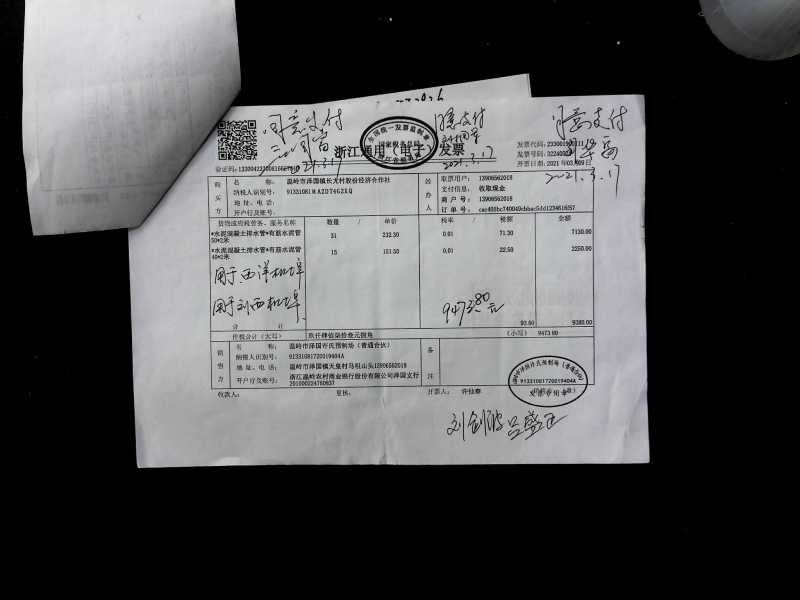 同意支付
同意支付
同意支付
2021.3.17
2021.3.17
2021.3.17
全国统一发票监制章
国家税务总局
浙江通用（电子）发票
发票代码:
发票号码:
开票日期: 2021 年03月09日
验证码:
购买方
名 称: 温岭市泽国镇长大村股份经济合作社
纳税人识别号: 91331081MAZDT4GZXQ
地 址、电 话:
开户行及账号:
经办人
取票用户: 13906562018
支付信息: 收取现金
商 户 号: 13906562018
订 单 号:
货物或应税劳务、服务名称 数量 / 单价 税率 / 税额 金额
*水泥混凝土排水管*有筋水泥管 31 232.30 0.01 71.30 7130.00
50*2米
*水泥混凝土排水管*有筋水泥管 15 151.50 0.01 22.50 2250.00
40*2米
用于西洋机埠
用于刘西机埠
9473.80元
合 计 93.80 9380.00
价税合计（大写） 玖仟肆佰柒拾叁元捌角 (小写) 9473.80
销售方
名 称: 温岭市泽国许氏预制场（普通合伙）
纳税人识别号: 91331081720019404A
地 址、电 话: 温岭市泽国镇天皇村马祖山头13906562018
开户行及账号: 浙江温岭农村商业银行股份有限公司泽国支行
201000024760937
备注
温岭市泽国许氏预制场（普通合伙）
91331081720019404A
发票专用章
收款人: 复核: 开票人: 许仙春
刘剑波 吕盛正